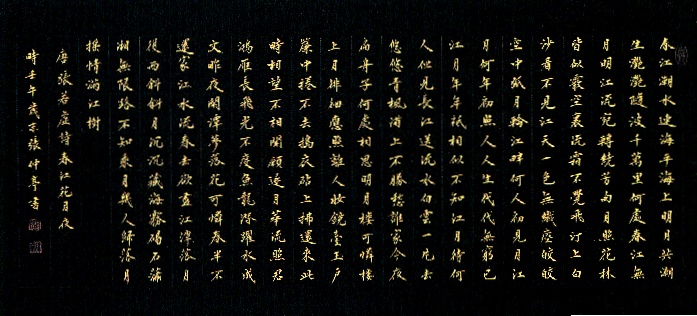 春江潮水連海平海上明月共潮
生灧灧隨波千萬里何處春江無
月明江流宛轉繞芳甸月照花林
皆似霰空裏流霜不覺飛汀上白
沙看不見江天一色無纖塵皎皎
空中孤月輪江畔何人初見月江
月何年初照人人生代代無窮已
江月年年祇相似不知江月待何
人但見長江送流水白雲一片去
悠悠青楓浦上不勝愁誰家今夜
扁舟子何處相思明月樓可憐樓
上月排徊應照離人妝鏡臺玉戶
簾中捲不去搗衣砧上拂還來此
時相望不相聞願逐月華流照君
鴻雁長飛光不度魚龍潛躍水成
文昨夜閒潭夢落花可憐春半不
還家江水流春去欲盡江潭落月
復西斜斜月沉沉藏海霧碣石瀟
湘無限路不知乘月幾人歸落月
搖情滿江樹
唐張若虛詩春江花月夜
時壬午歲末張仲亭書